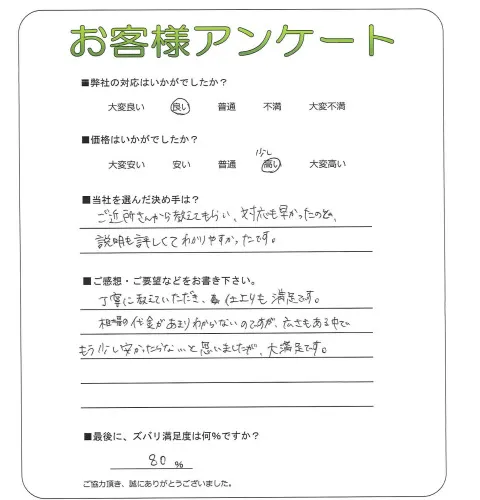 お客様アンケート
■弊社の対応はいかがでしたか？
大変良い 良い 普通 不満 大変不満
■価格はいかがでしたか？
少し
大変安い 安い 普通 高い 大変高い
■当社を選んだ決め手は？
ご近所さんから教えてもらい、対応も早かったのと、
説明も詳しくてわかりやすかったです。
■ご感想・ご要望などをお書き下さい。
丁寧に教えていただき、仕上りも満足です。
相場の代金があまりわからないのですが、広さもある中で
もう少し安かったらなぁと思いましたが、大満足です。
■最後に、ズバリ満足度は何%ですか？
80 %
ご協力頂き、誠にありがとうございました。